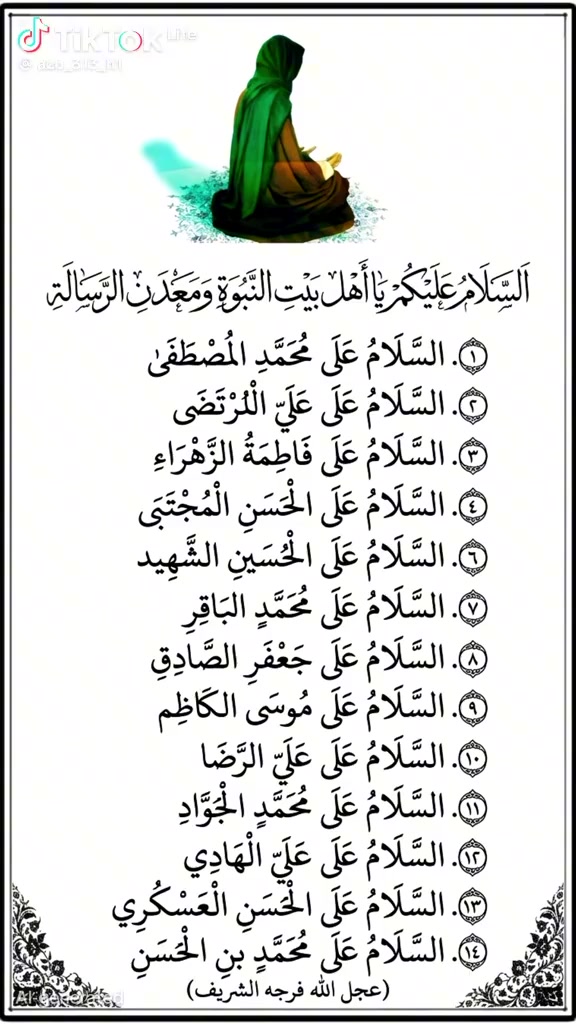 TikTok Lite
@ azb_313_h1
اَلسَّلَامُ عَلَيْكُمْ يَا أَهْلَ بَيْتِ النَّبُوَةِ وَمَعْدَنِ الرَّسَالَةِ
١. السَّلَامُ عَلَى مُحَمَّدِ المُصْطَفَى
٢. السَّلَامُ عَلَى عَلَيّ الْمُرْتَضَى
٣. السَّلَامُ عَلَى فَاطِمَةُ الزَّهْرَاءِ
٤. السَّلَامُ عَلَى الْحَسَنِ الْمُجْتَبَى
٦. السَّلَامُ عَلَى الْحُسَينِ الشَّهِيد
٧. السَّلَامُ عَلَى مُحَمَّدٍ البَاقِرِ
٨. السَّلَامُ عَلَى جَعْفَرِ الصَّادِقِ
٩. السَّلَامُ عَلَى مُوسَى الكَاظِم
١٠. السَّلَامُ عَلَى عَلَيّ الرَّضَا
١١. السَّلَامُ عَلَى مُحَمَّدٍ الْجَوَّادِ
١٢. السَّلَامُ عَلَى عَلَيّ الْهَادِي
١٣. السَّلَامُ عَلَى الْحَسَنِ الْعَسْكُرِي
١٤. السَّلَامُ عَلَى مُحَمَّدٍ بنِ الْحَسَنِ
(عجل الله فرجه الشريف)
AI-generated